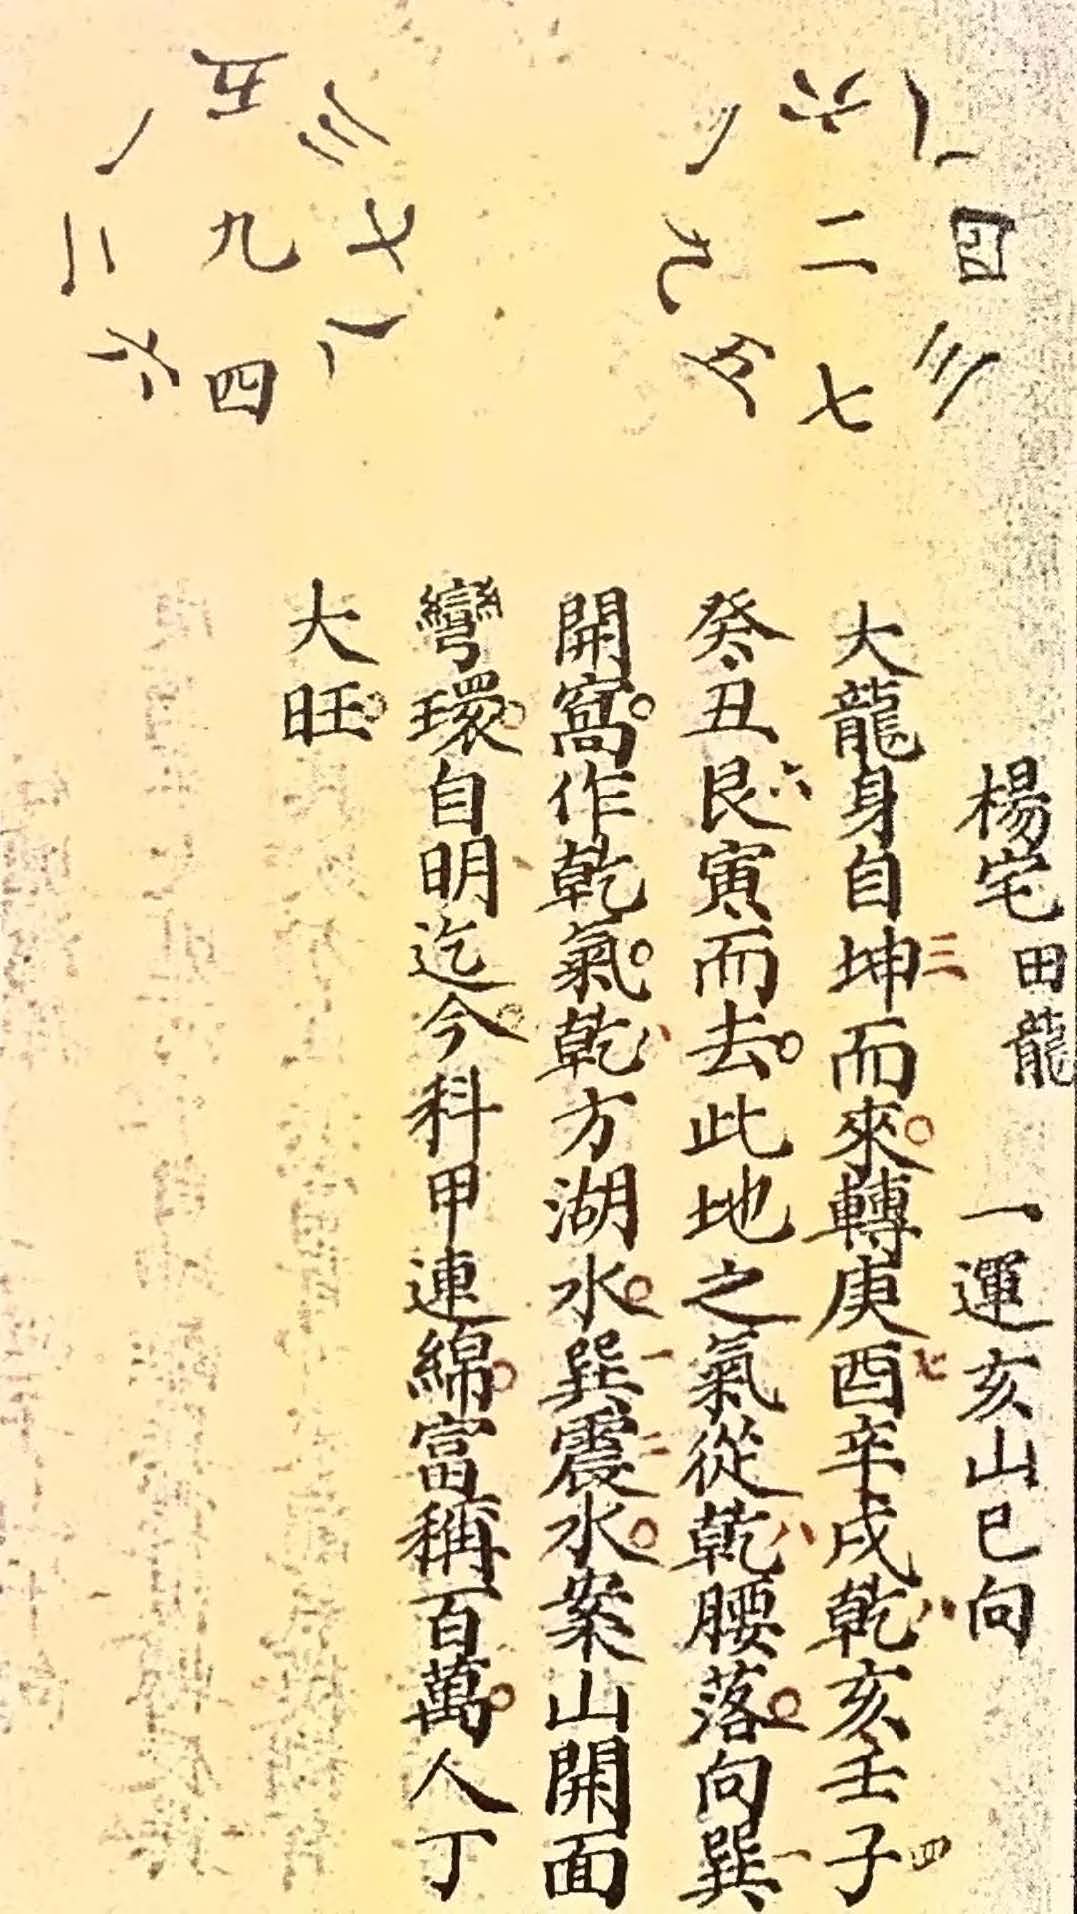 八四三
六二七
一九五
三七八
五九四
一二六
楊宅田龍 一運亥山巳向
大龍身自坤三而來轉庚酉七辛戌乾八亥壬子四
癸丑艮六寅而去此地之氣從乾八腰落向巽一
開窩作乾氣乾八方湖水巽一震二水案山開面
彎環自明迄今科甲連綿富稱百萬人丁
大旺